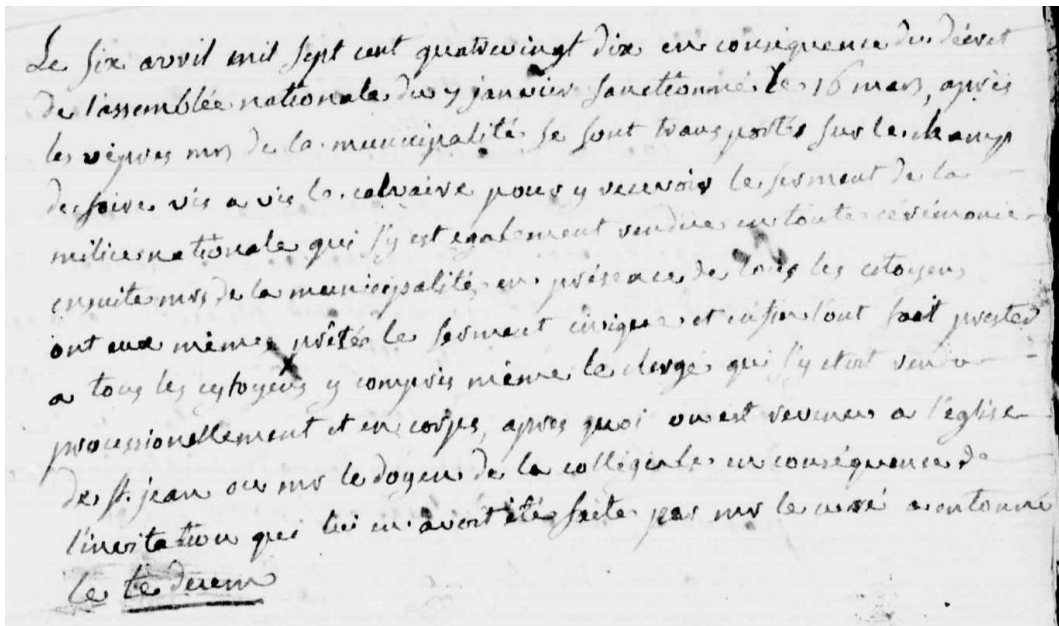 Le six avril mil sept cent quatrevingt dix en conséquence du décret
de l'assemblée nationale du 7 janvier sanctionné le 16 mars, après
les vêpres mrs de la municipalité se sont transportés sur le champ
de foire vis a vis le calvaire pour y recevoir le serment de la
milice nationale qui s'y est egalement rendue en toute cérémonie
ensuite mrs de la municipalité en présence de tous les citoyens
ont eux mêmes prêtés le serment civique et enfin l'ont fait prester
a tous les cytoyens y compris même le clergé qui s'y etoit rendu
processionellement et en corps, apres quoi on est revenu a l'église
de st. jean ou mr le doyen de la collégiale en conséquence de
l'invitation qui lui en avoit été faite par mr le curé a entonné
le te deum